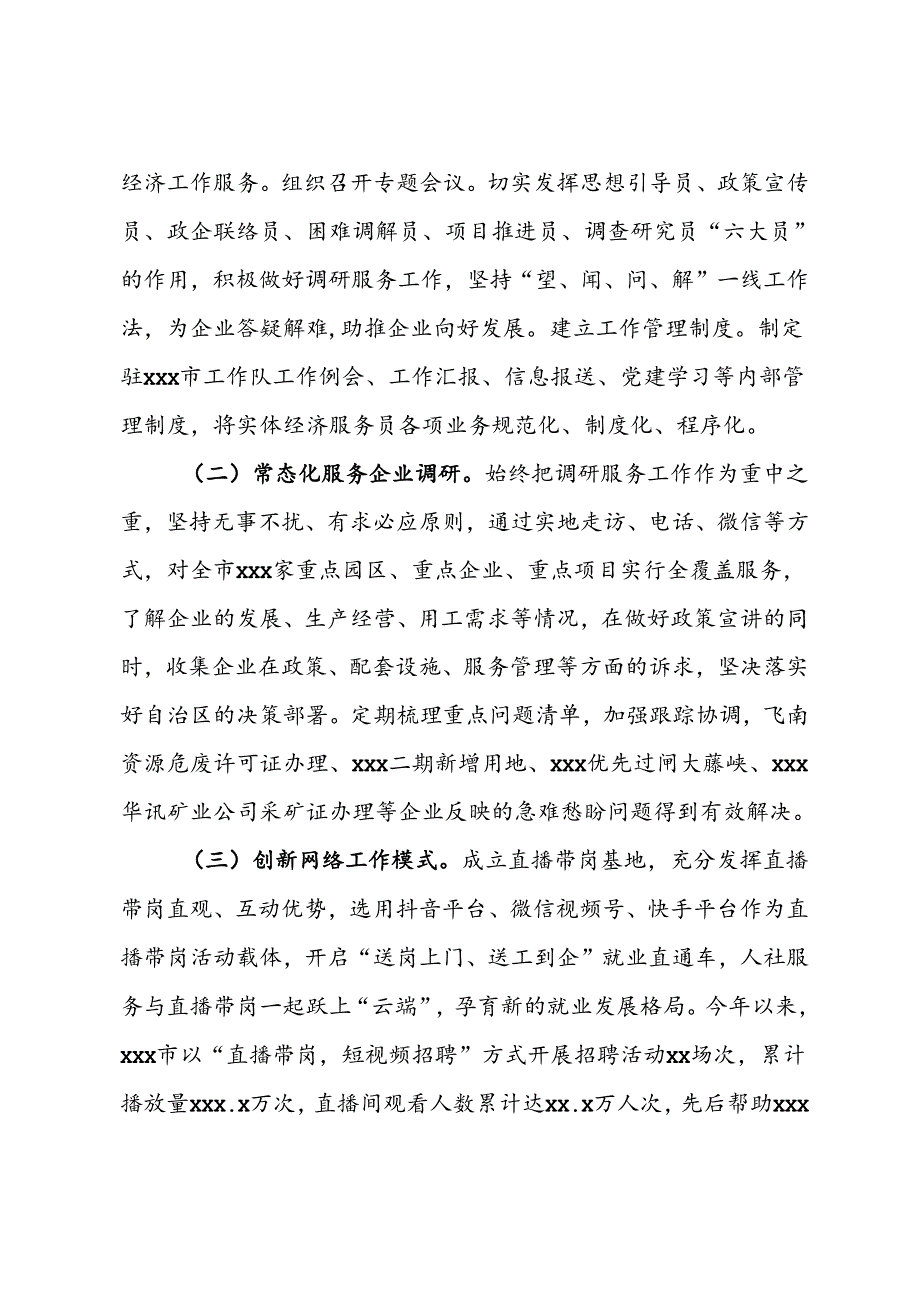 经济工作服务。组织召开专题会议。切实发挥思想引导员、政策宣传
员、政企联络员、困难调解员、项目推进员、调查研究员“六大员”
的作用，积极做好调研服务工作，坚持“望、闻、问、解”一线工作
法，为企业答疑解难,助推企业向好发展。建立工作管理制度。制定
驻xxx市工作队工作例会、工作汇报、信息报送、党建学习等内部管
理制度，将实体经济服务员各项业务规范化、制度化、程序化。
（二）常态化服务企业调研。始终把调研服务工作作为重中之
重，坚持无事不扰、有求必应原则，通过实地走访、电话、微信等方
式，对全市xxx家重点园区、重点企业、重点项目实行全覆盖服务，
了解企业的发展、生产经营、用工需求等情况，在做好政策宣讲的同
时，收集企业在政策、配套设施、服务管理等方面的诉求，坚决落实
好自治区的决策部署。定期梳理重点问题清单，加强跟踪协调，飞南
资源危废许可证办理、xxx二期新增用地、xxx优先过闸大藤峡、xxx
华讯矿业公司采矿证办理等企业反映的急难愁盼问题得到有效解决。
（三）创新网络工作模式。成立直播带岗基地，充分发挥直播
带岗直观、互动优势，选用抖音平台、微信视频号、快手平台作为直
播带岗活动载体，开启“送岗上门、送工到企”就业直通车，人社服
务与直播带岗一起跃上“云端”，孕育新的就业发展格局。今年以来，
xxx市以“直播带岗，短视频招聘”方式开展招聘活动xx场次，累计
播放量xxx.x万次，直播间观看人数累计达xx.x万人次，先后帮助xxx